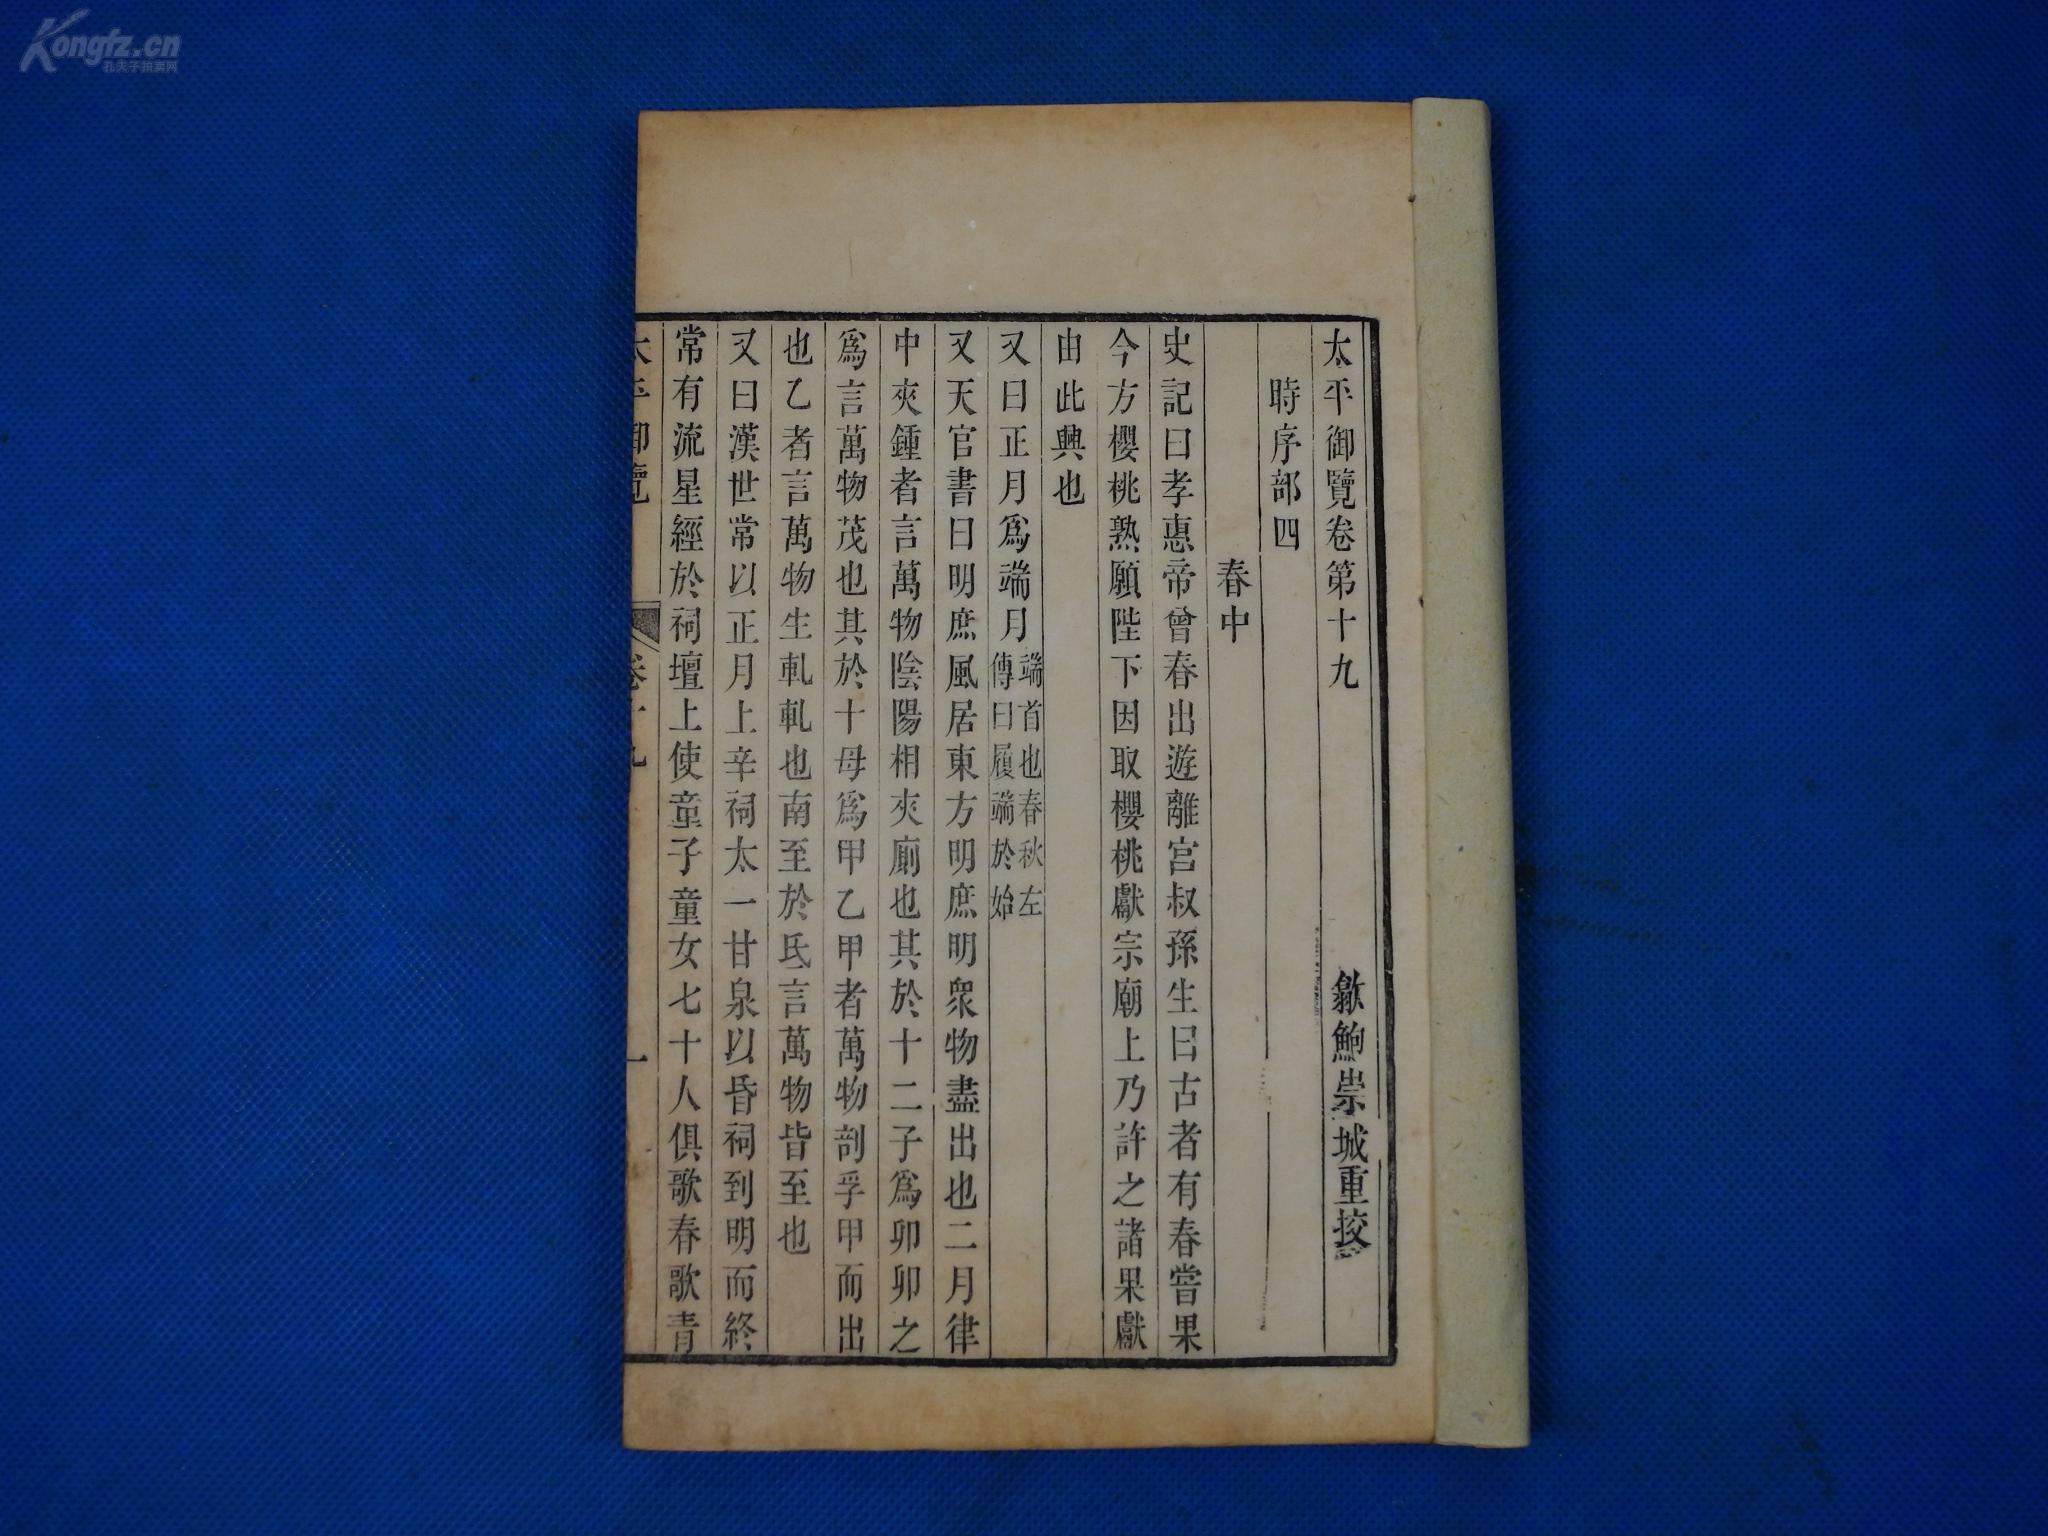 Kongfz.cn
孔夫子拍卖网
太平御覽卷第十九 歙鮑崇城重挍
時序部四
春中
史記曰孝惠帝曾春出遊離宮叔孫生曰古者有春嘗果
今方櫻桃熟願陛下因取櫻桃獻宗廟上乃許之諸果獻
由此興也
又曰正月爲端月端首也春秋左傳曰履端於始
又天官書曰明庶風居東方明庶明衆物盡出也二月律
中夾鍾者言萬物陰陽相夾廁也其於十二子爲卯卯之
爲言萬物茂也其於十母爲甲乙甲者萬物剖孚甲而出
也乙者言萬物生軋軋也南至於氐言萬物皆至也
又曰漢世常以正月上辛祠太一甘泉以昏祠到明而終
常有流星經於祠壇上使童子童女七十人俱歌春歌青
太平御覽 卷十九 一